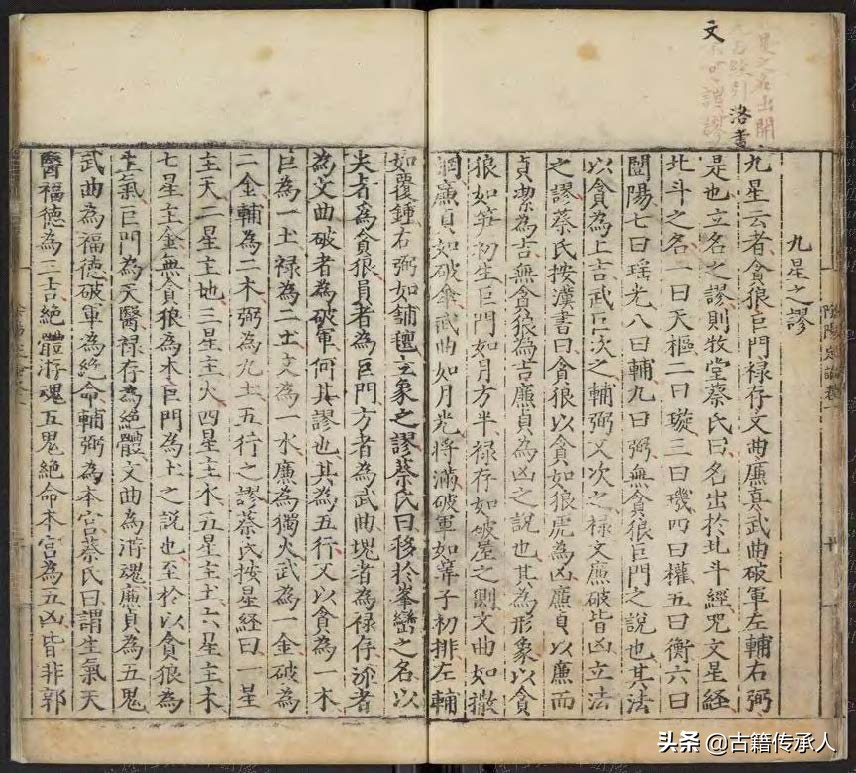 九星之謬
九星云者貪狼巨門禄存文曲廉真武曲破軍左輔右弼
是也立名之謬則牧堂蔡氏曰名出於北斗經咒文星經
北斗之名一曰天樞二曰璇三曰璣四曰權五曰衡六曰
闓陽七曰瑶光八曰輔九曰弼無貪狼巨門之說也其法
以貪為上吉武巨次之輔弼又次之禄文廉破皆凶立法
之謬蔡氏按漢書曰貪狼以貪如狼虎為凶廉貞以廉而
貞潔為吉無貪狼為吉廉貞為凶之說也其為形象以貪
狼如笋初生巨門如月方半禄存如破屋之則文曲如撒
網廉貞如破傘武曲如月光将滿破軍如筭子初排左輔
如覆鍾右弼如鋪氊立象之謬蔡氏曰移於峯巒之名以
尖者為貪狼員者為巨門方者為武曲塊者為禄存流者
為文曲破者為破軍何其謬也其為五行又以貪為一木
巨為一土禄為二土文為一水廉為獨火武為一金破為
二金輔為二木弼為九土五行之謬蔡氏按星経曰一星
主天二星主地三星主火四星主水五星主土六星主木
七星主金無貪狼為木巨門為土之說也至於以貪狼為
生氣巨門為天醫禄存為絶體文曲為游魂廉貞為五鬼
武曲為福德破軍為絶命輔弼為本宫蔡氏曰謂生氣天
醫福德為三吉絶體游魂五鬼絶命本宫為五凶皆非郭
文
洛書
星之名出開
陰陽定論卷一
头条 @古籍传承人